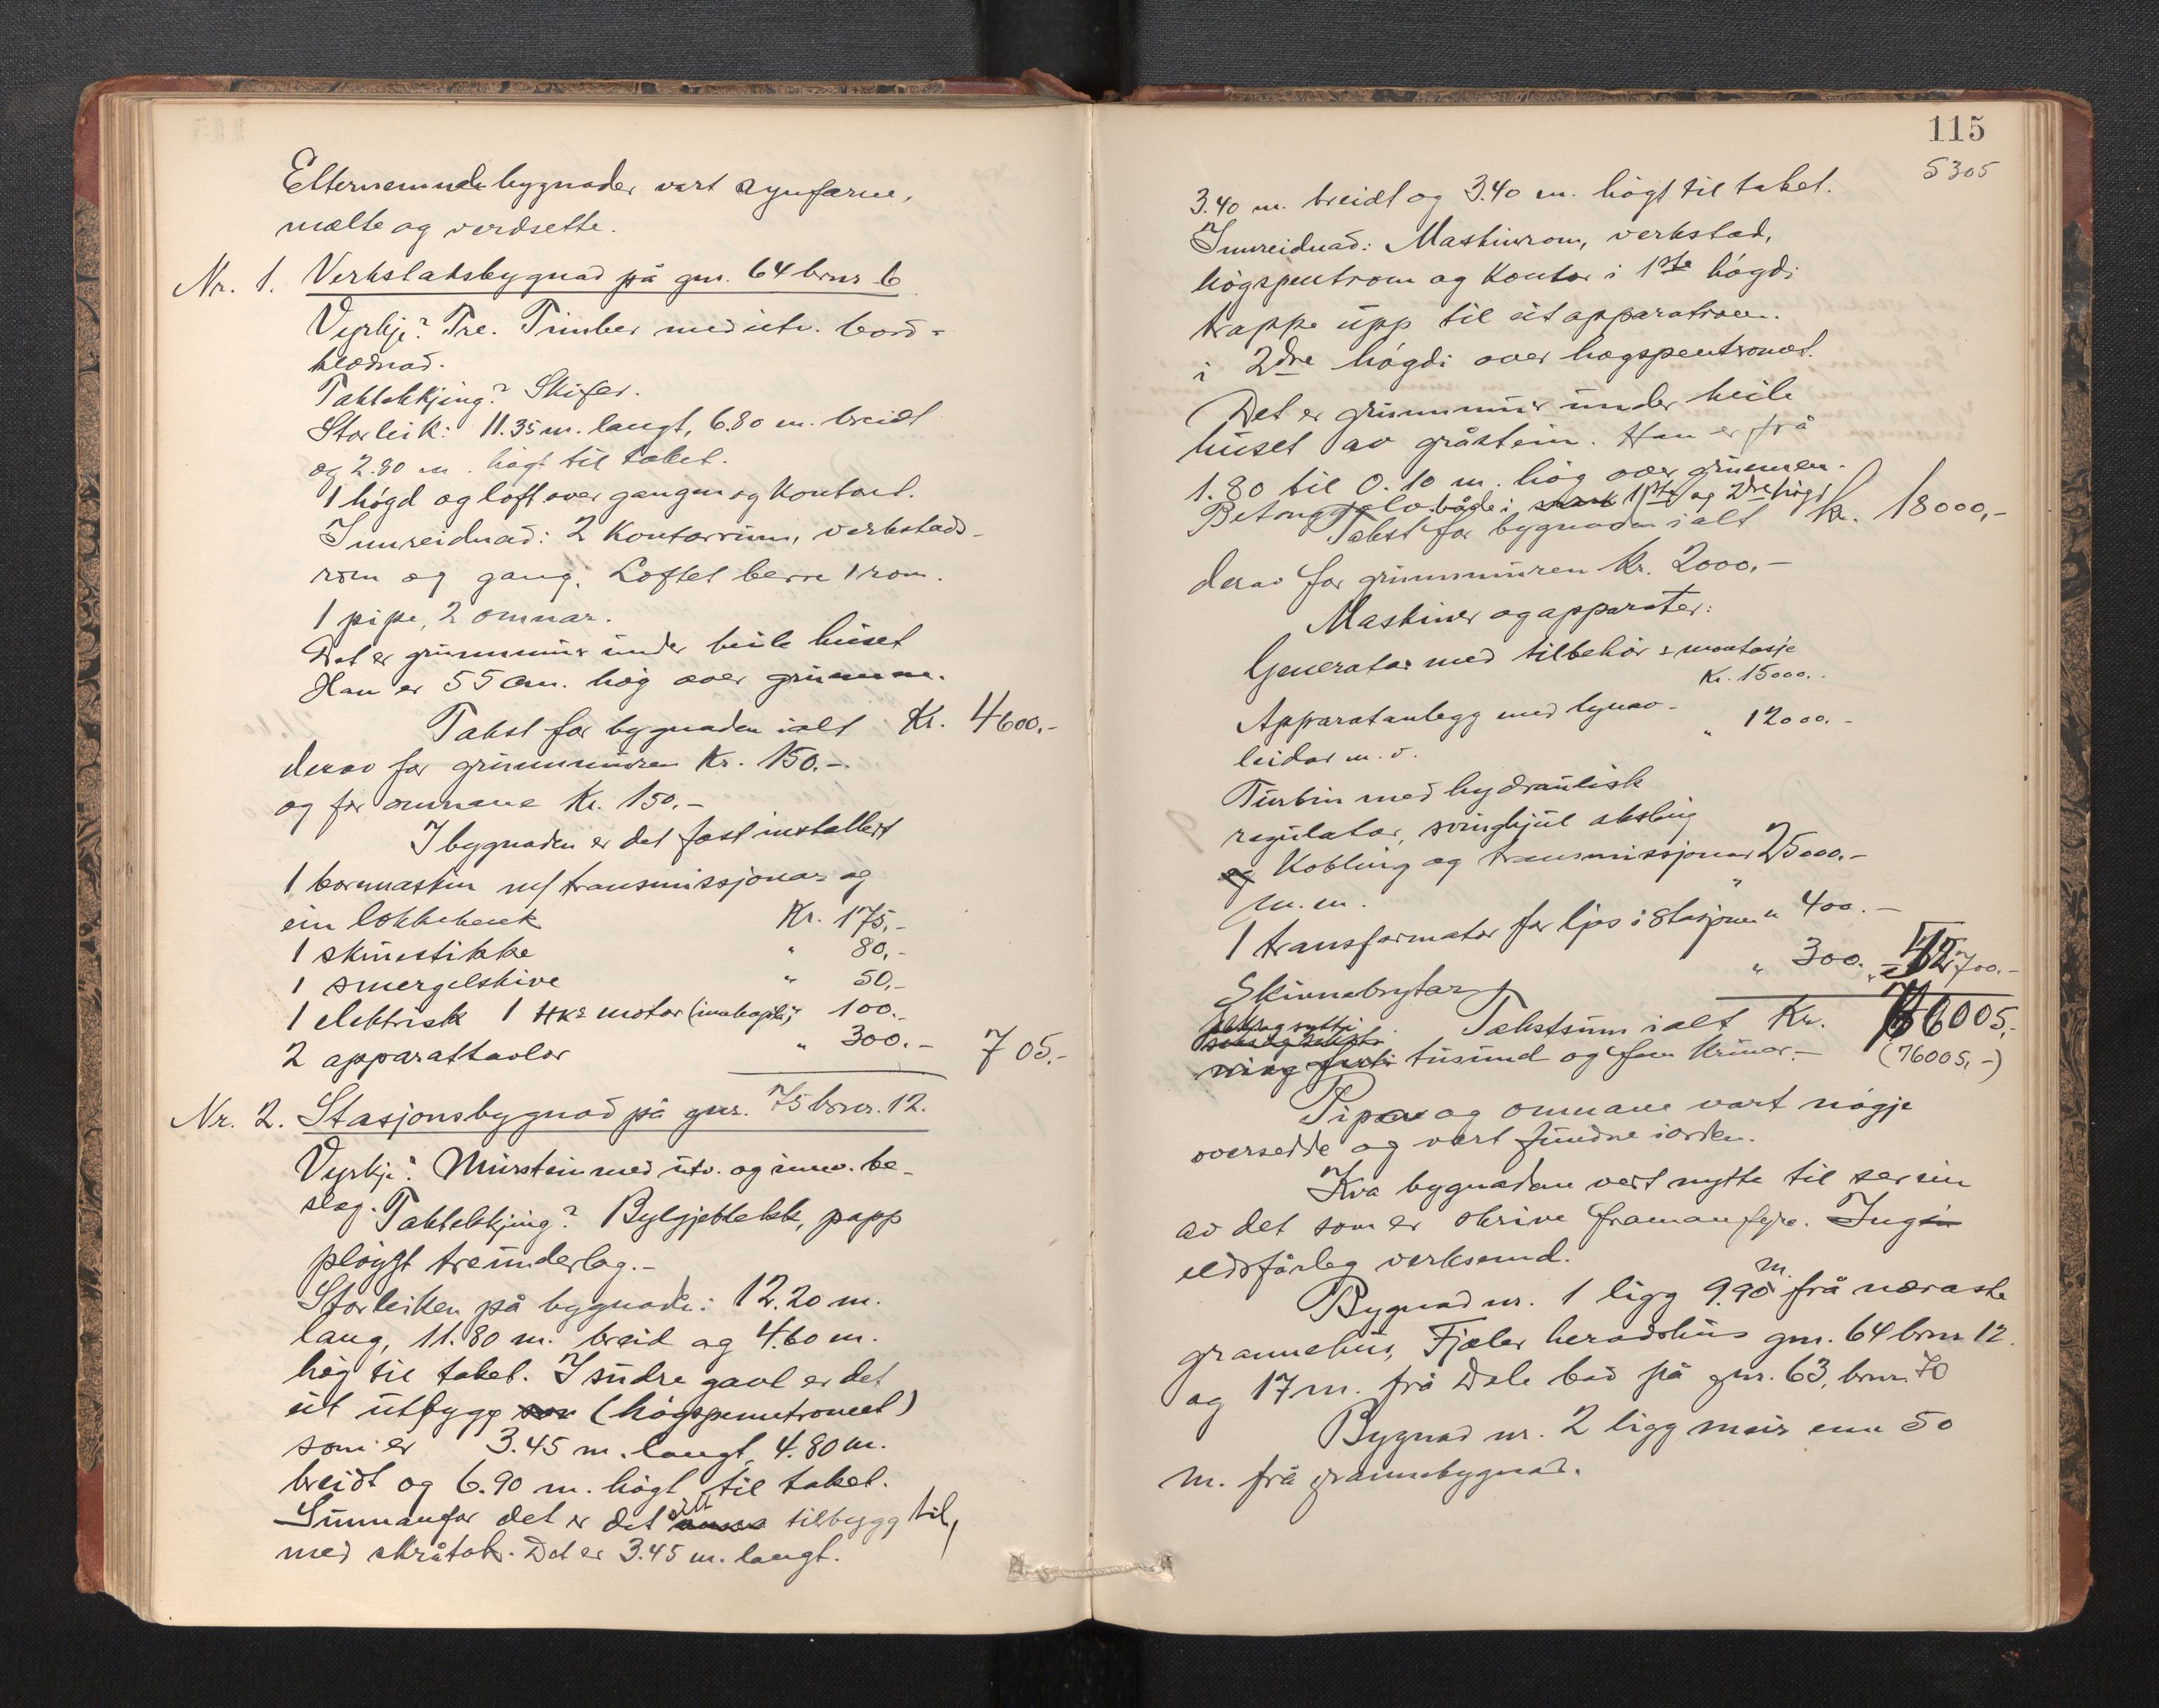 Etternemnde bygnader vart synfarne,
mælte og verdsette.
Nr. 1. Verkstadsbygnad på gnr. 64 brnr 6
Vyrkje? Tre. Timber med utv. bord-
klædnad.
Taktekkjing? Skifer.
Storleik: 11.35 m. langt, 6.80 m. breidt
og 2.80 m. högt til taket.
1 högd og loft over gangen og Kontoret.
Innreidnad: 2 Kontorrum, verkstads-
rom og gang. Loftet berre 1 rom.
1 pipe, 2 omnar.
Det er grunnmur under heile huset
Han er 55 cm. hög over grunnen.
Takst for bygnaden ialt Kr. 4600.-
derav for grunnmuren Kr. 150.-
og for omnane Kr. 150.-
I bygnaden er det fast installert
1 bormaskin m/ transmissjonar og
ein lokkebenk Kr. 175,-
1 skruestikke " 80,-
1 smergelskive " 50,-
1 elektrisk 1 HKs motor 100.-
2 apparattavlor " 300.- 705.-
Nr. 2. Stasjonsbygnad på gnr. 75 brnr. 12.
Vyrkje? Murstein med utv. og innv. be-
slag. Taktekkjing? Bylgjeblekk, papp
pløygt treunderlag.-
Storleiken på bygnade: 12.20 m.
lang, 11.80 m. breid og 4.60 m.
høg til taket. I sudre gavl er det
eit utbygg (högspennetromet)
som er 3.45 m. langt, 4.80 m.
breidt og 6.90 m. högt til taket.
Sunnanfor det er det eitt tilbygg til,
med skråtak. Det er 3.45 m. langt.
115
S 305
3.40 m. breidt og 3.40 m. högt til taket.
Innreidnad: Maskinrom, verkstad,
högspentrom og Kontor i 1ste högdi
trapp upp til eit apparatrom
i 2dre högdi over høgspentromet.
Det er grunnmur under heile
huset av gråstein. Han er frå
1.80 til 0.10 m. hög over grunnen.
Betonggolv både i 1ste og 2dre högd
Takst for bygnaden ialt Kr. 18000,-
derav for grunnmuren Kr. 2000.-
Maskiner og apparater:
Generator med tilbehör & montasje
Kr. 15000.-
Apparatanlegg med lynav-
" 12000.-
leidar m. v.
Turbin med hydraulisk
regulator, svinghjul aksling
og Kobling og transmissjonar 25000.-
m. m. "
1 transformator for ljos i Stasjonen " 400.-
Skinnebrytar " 300. " 52700.-
Takstsum ialt Kr. 76005.-
seks og sytti
tusund og fem kronor.- (76005.-)
Pipor og omnane vart nögje
oversedde og vart fundne iorden.
Kva bygnadene vert nytta til ser ein
av det som er skrive framanfyre. Ingi
eldsfårleg verksemd.
Bygnad nr. 1 ligg 9.90 m. frå næraste
grannehus, Fjaler heradshus gnr. 64 brnr 12.
og 17 m. frå Dale bad på gnr. 63, brnr 70
Bygnad nr. 2 ligg meir enn 50
m. frå grannebygnad.